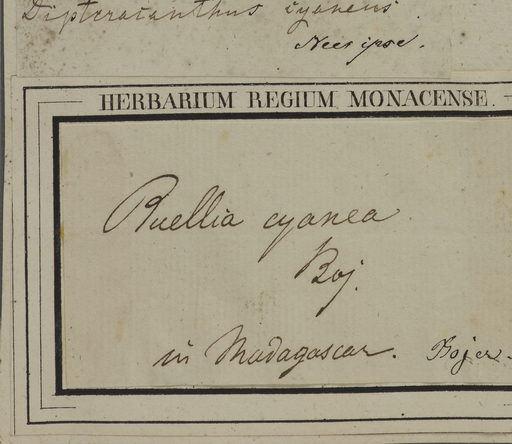 Dipteracanthus cyaneus
Nees ipse.
HERBARIUM REGIUM MONACENSE.
Ruellia cyanea
Boj.
in Madagascar. Bojer.